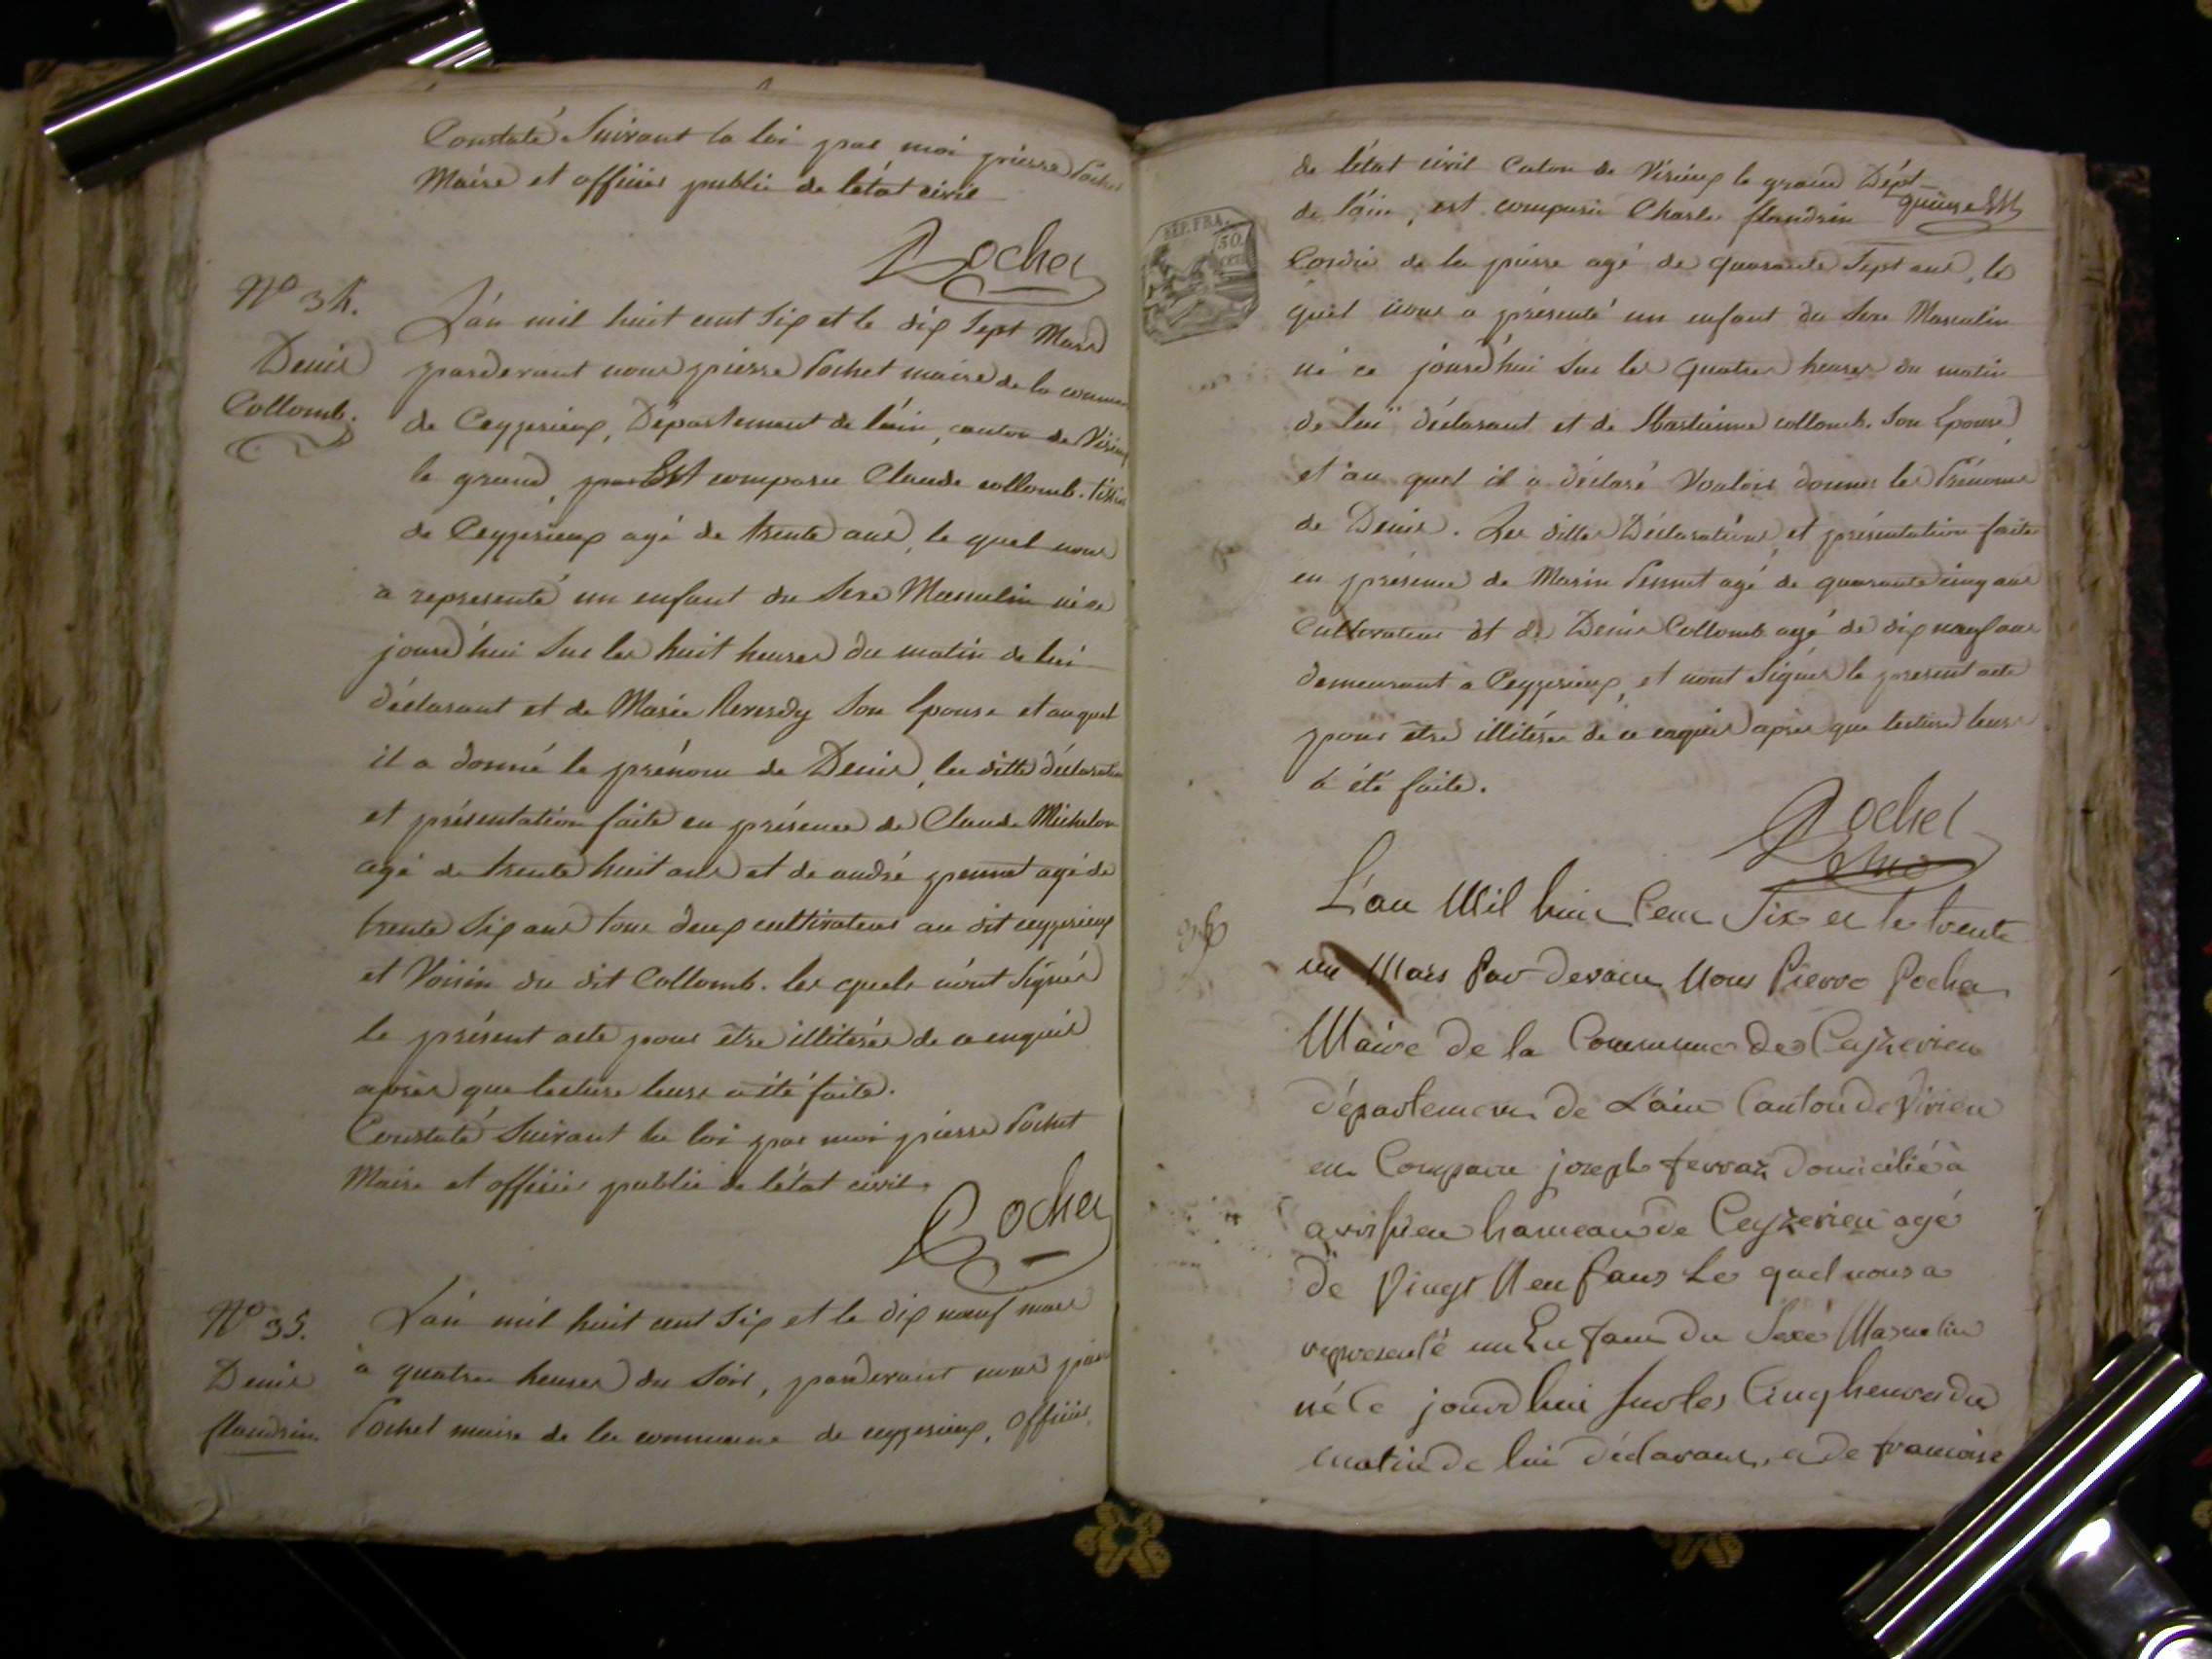 Constaté Suivant la loi par moi pierre Pochet
Maire et officier public de létat civil
Pochet
N° 34.
Denis
Collomb.
L'an mil huit cent six et le dix sept Mars
pardevant nous pierre Pochet maire de la commune
de Ceyzerieux, Département de l'ain, canton de Virieux
le grand, par Est comparu Claude collomb. tissier
de Ceyzerieux agé de trente ans, le quel nous
a representé un enfant du Sexe Masculin né ce
jourd'hui Sur les huit heures du matin de lui
déclarant et de Marie Reverdy Son Epouse et auquel
il a donné le prénom de Denis, les dittes déclaration
et présentation faite en présence de Claude Michelon
agé de trente huit ans et de andré pennet agé de
trente six ans tous deux cultivateurs au dit ceyzerieux
et Voisin du dit Collomb. les quels n'ont Signés
le présent acte pour être illitérés de ce enquis
après que lecture leurs a été faite.
Constaté Suivant la loi par moi pierre Pochet
Maire et officier public de l'état civil.
Pochet
N° 35.
Denis
flandrin.
L'an mil huit cent six et le dix neuf mars
à quatre heures du Soir, pardevant nous pierre
Pochet maire de la commune de ceyzerieux, officier
de l'état civil Caton de Virieux le grand Dépt
de l'ain, est comparu Charles flandrin
REP. FRA.
50
Cordié de la pierre agé de quarante Sept ans, le
quel nous a présenté un enfant du Sexe Masculin
né ce jourd'hui Sur les quatres heures du matin
de lui déclarant et de Sbastienne collomb. Son Epouse,
et au quel il a déclaré Vouloir donner les Prénoms
de Denis. Les dittes Déclarations et présentation faites
en présence de Marin Pennet agé de quarante cinq ans
Cultivateur et de Denis Collomb agé de dix neuf ans
demeurant à Ceyzerieux, et n'ont Signés le present acte
pour être illitérés de ce enquis après que lecture leurs
à été faite.
Pochet
36
L'an Mil huit Cent Six et le trente
un Mars Par devant Nous Pierre Pochet
Maire de la Commune de Ceyzerieu
département de Lain Canton de Virieu
est Comparu joseph ferraz domicilié à
avrissieu hameau de Ceyzerieu agé
de Vingt Neuf ans Le quel nous a
representé un Enfant du Sexe Masculin
né Ce jourdhui sur les Cinq heures du
matin de lui déclarant, et de francoise